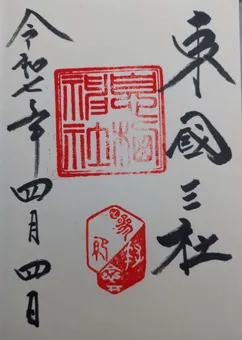 東國三社
息栖神社
令和七年四月四日